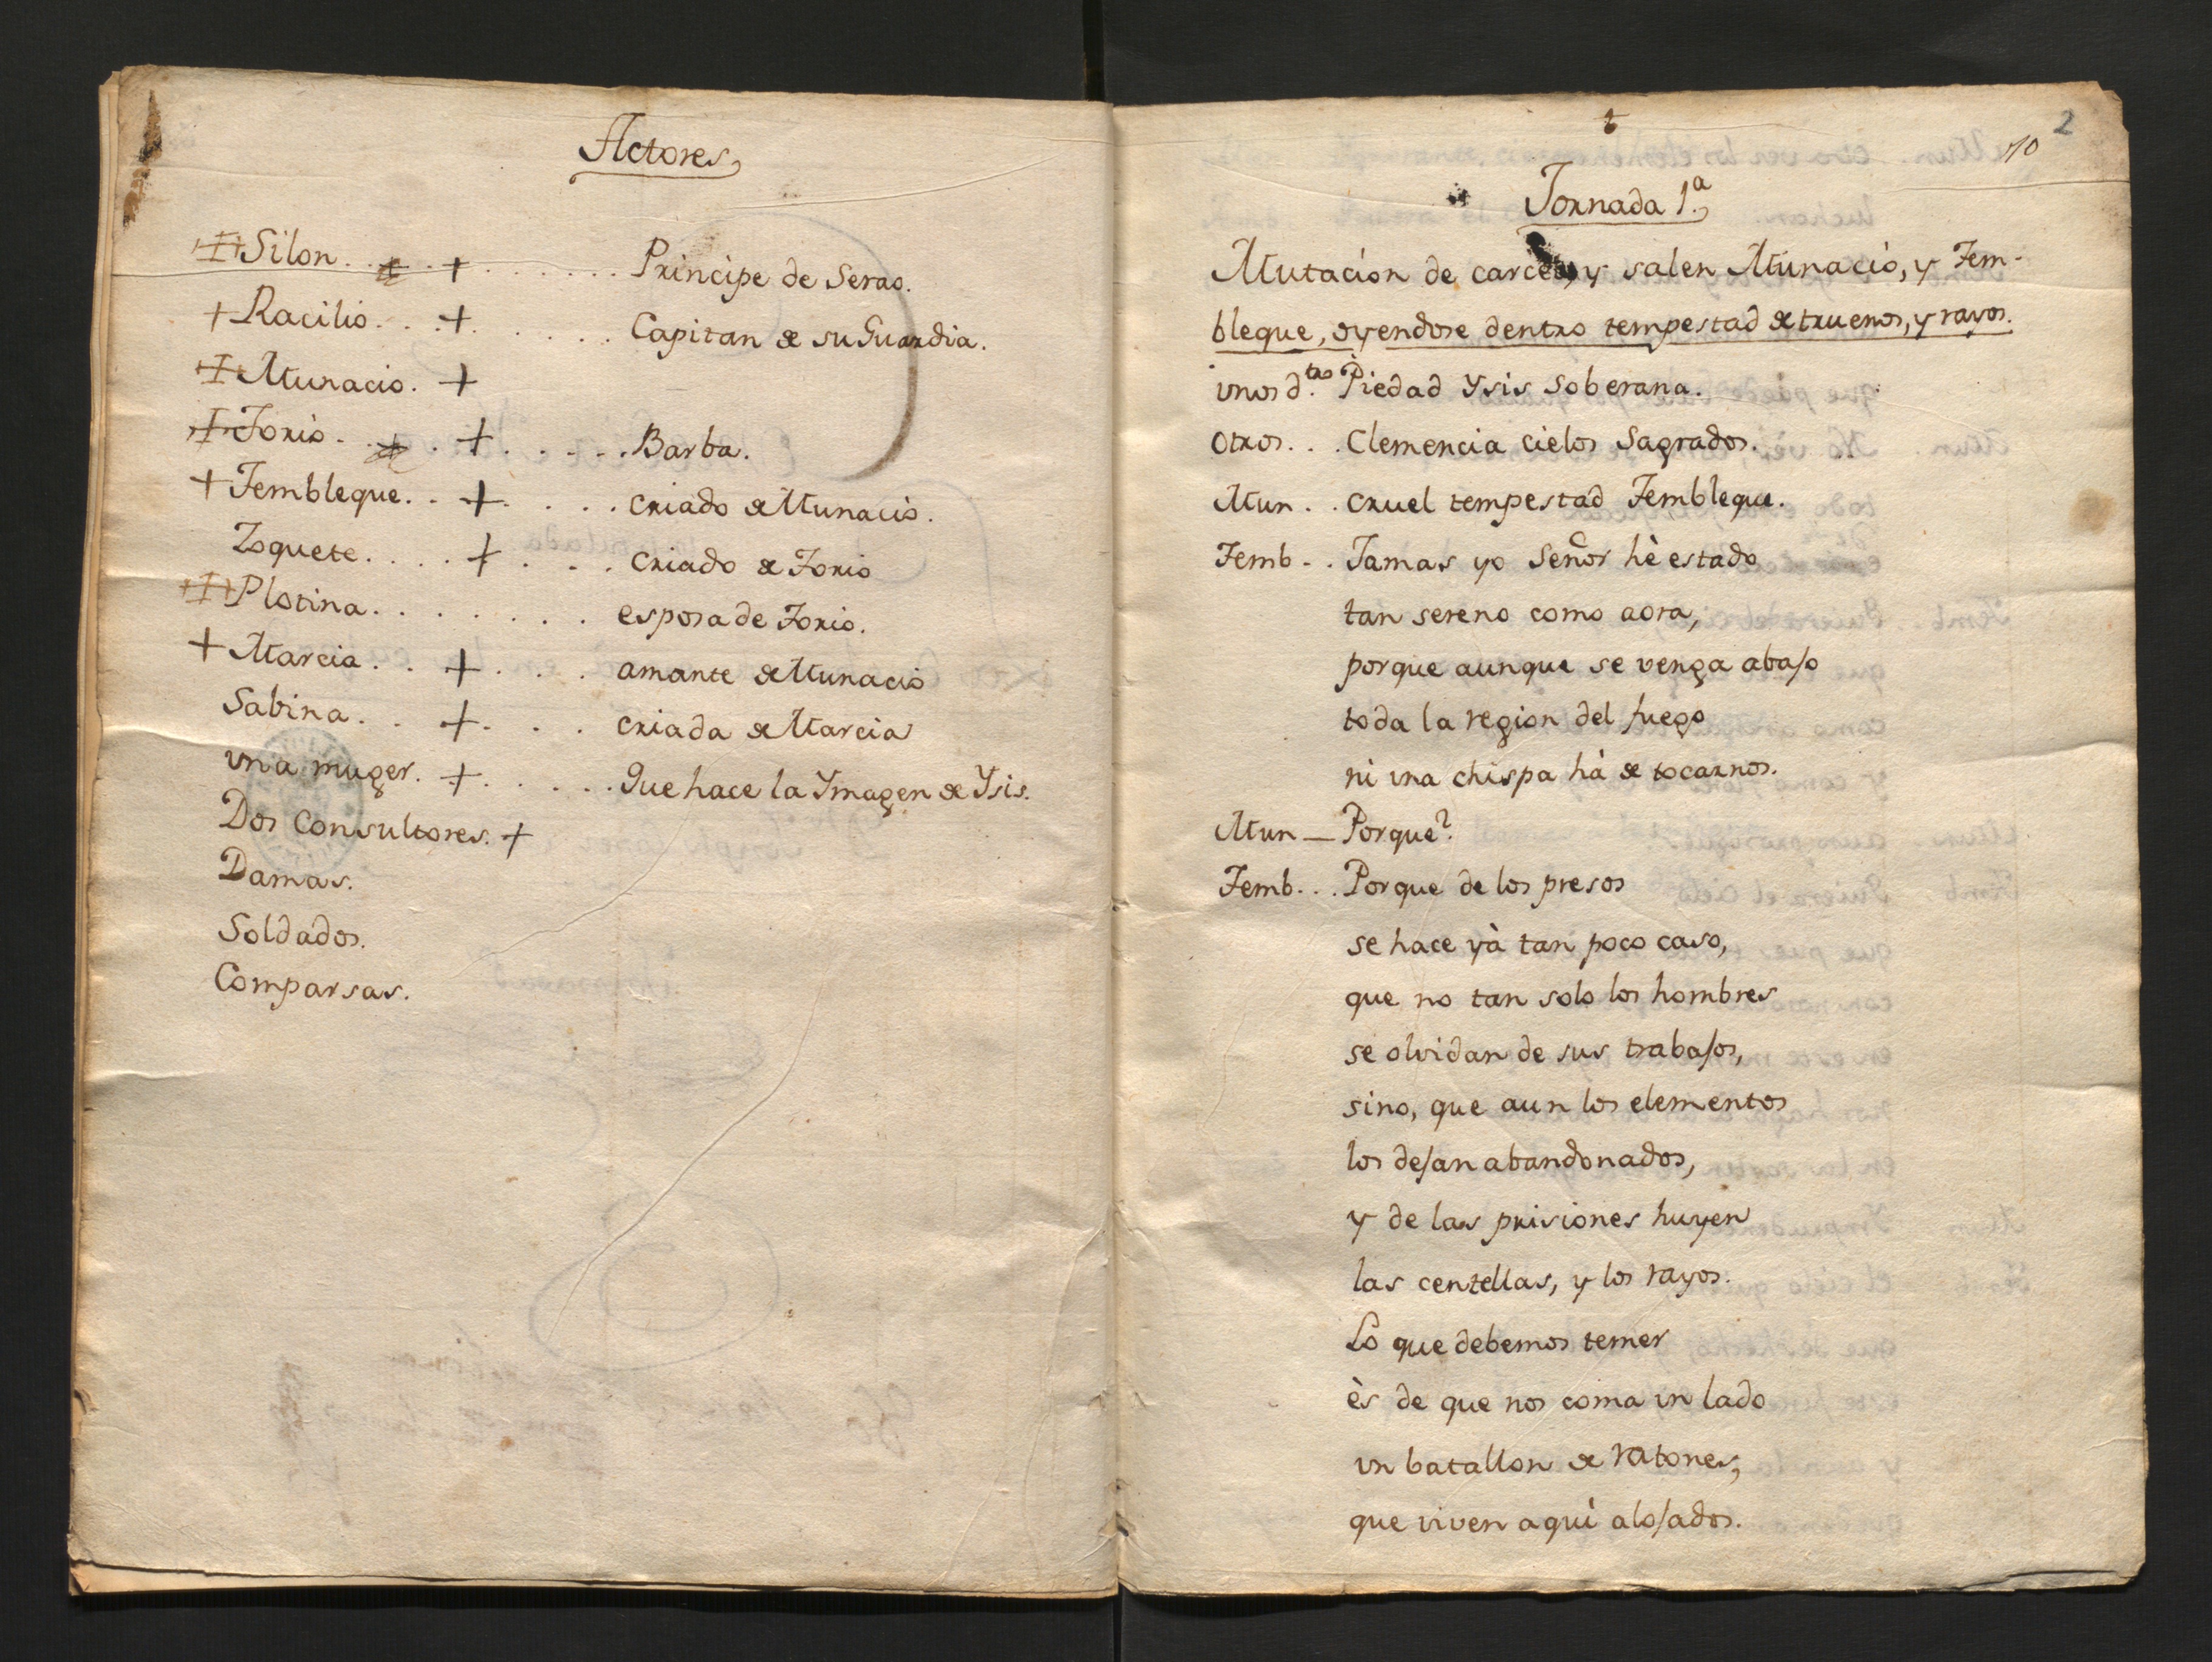 Actores,
Silon . . . + . . . . . . . Principe de Serao.
+ Racilio . . . + . . . . . Capitan de su Guardia.
Munacio. +
Torio . . . + . . . . . . Barba.
+ Tembleque. . + . . . . criado de Munacio.
Zoquete. . . . + . . . . criado de Torio
Plotina . . . . . . . . esposa de Torio.
+ Marcia . . + . . . amante de Munacio
Sabina . . + . . . criada de Marcia
vna muger. + . . . . . Que hace la Ymagen de Ysis.
Dos Consultores. +
Damas.
Soldados.
Comparsas.
2
10
Jornada 1.ª
Mutacion de carcel, y salen Munacio, y Tem-
bleque, oyendose dentro tempestad de truenos, y rayos.
vnos d.tro Piedad Ysis Soberana.
Otros. . . Clemencia cielos Sagrados.
Mun . . cruel tempestad Tembleque.
Temb . . Jamas yo Señor hè estado
tan sereno como aora,
porque aunque se venga abajo
toda la region del fuego
ni vna chispa hà de tocarnos.
Mun — Porque?
Temb. . . Porque de los presos
se hace yà tan poco caso,
que no tan solo los hombres
se olvidan de sus trabajos,
sino, que aun los elementos
los dejan abandonados,
y de las prisiones huyen
las centellas, y los rayos.
Lo que debemos temer
ès de que nos coma vn lado
vn batallon de ratones,
que viven aquì alojados.